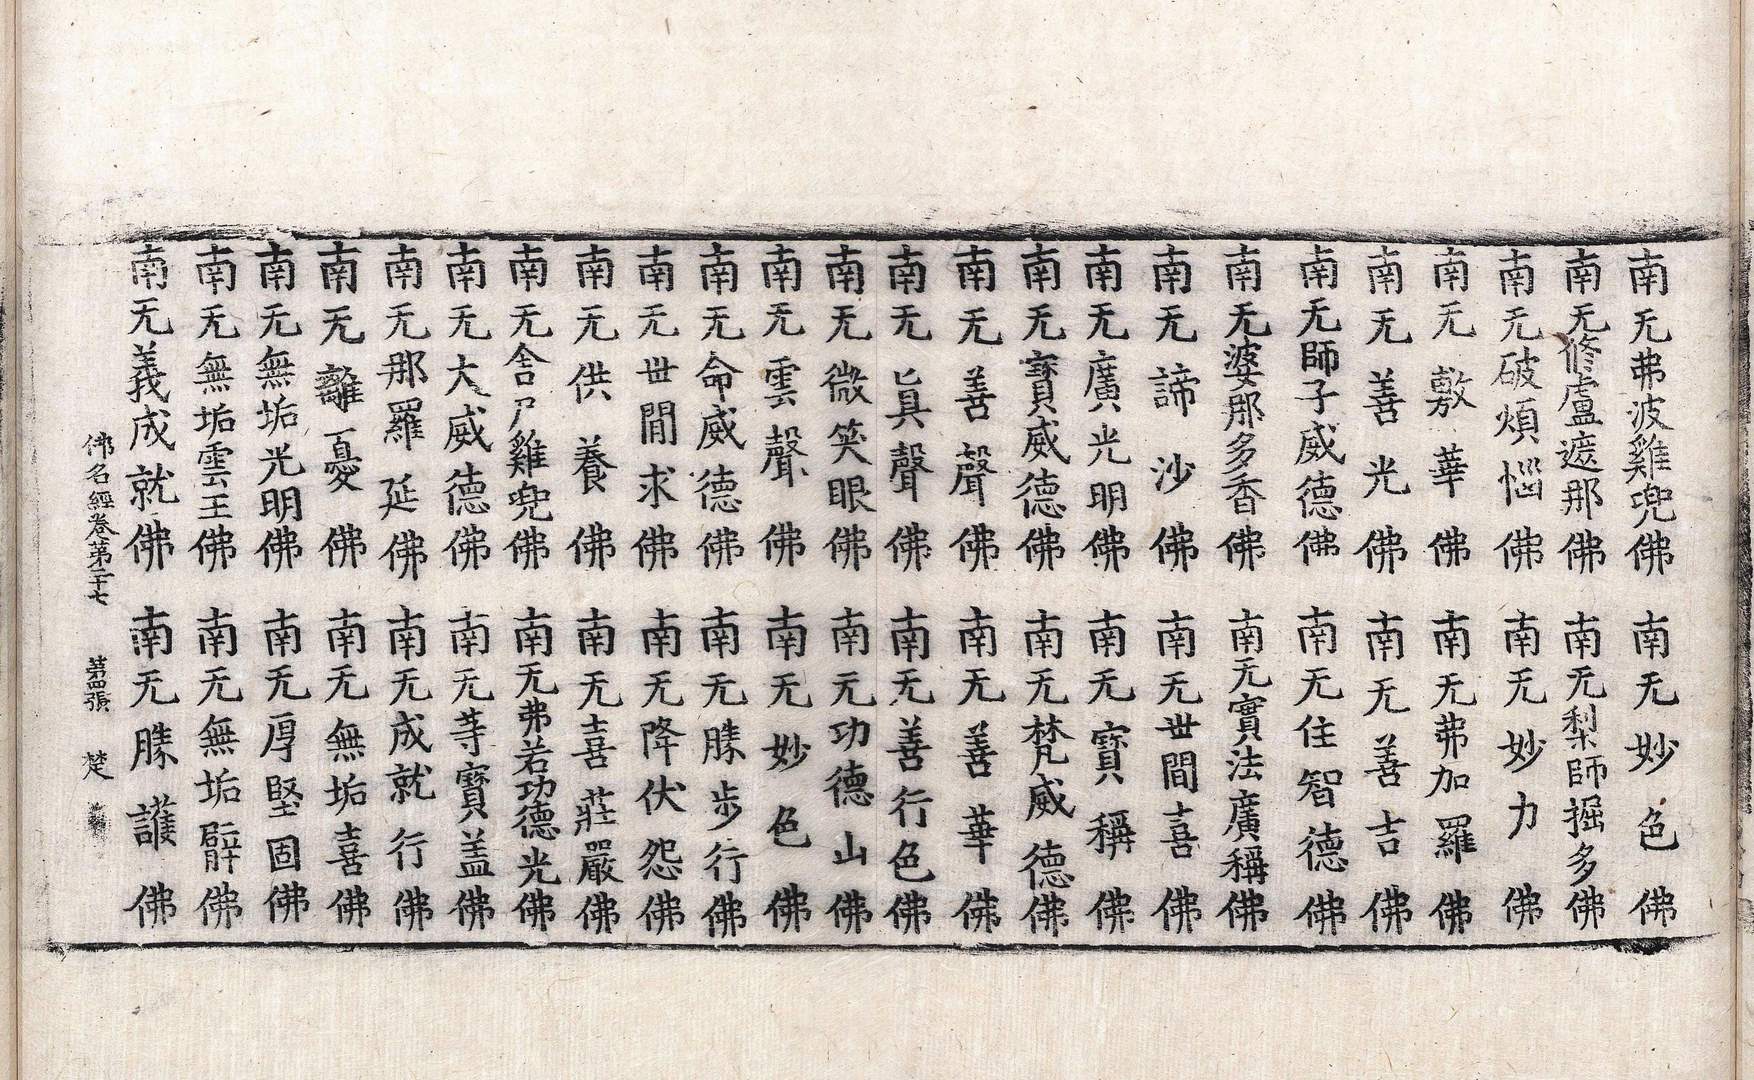 南无弗波雞兜佛　南无妙色佛
南无修盧遮那佛　南无梨師掘多佛
南无破煩惱佛　南无妙力佛
南无敷華佛　南无弗加羅佛
南无善光佛　南无善吉佛
南无師子威德佛　南无住智德佛
南无婆那多香佛　南无實法廣稱佛
南无諦沙佛　南无世間喜佛
南无廣光明佛　南无寶稱佛
南无寶威德佛　南无梵威德佛
南无善聲佛　南无善華佛
南无眞聲佛　南无善行色佛
南无微笑眼佛　南无功德山佛
南无雲聲佛　南无妙色佛
南无命威德佛　南无勝步行佛
南无世間求佛　南无降伏怨佛
南无供養佛　南无喜莊嚴佛
南无舍尸雞兜佛　南无弗若功德光佛
南无大威德佛　南无等寶盖佛
南无那羅延佛　南无成就行佛
南无離憂佛　南无無垢喜佛
南无無垢光明佛　南无厚堅固佛
南无無垢雲王佛　南无無垢臂佛
南无義成就佛　南无勝護佛
佛名經卷第二十七　第四張　楚